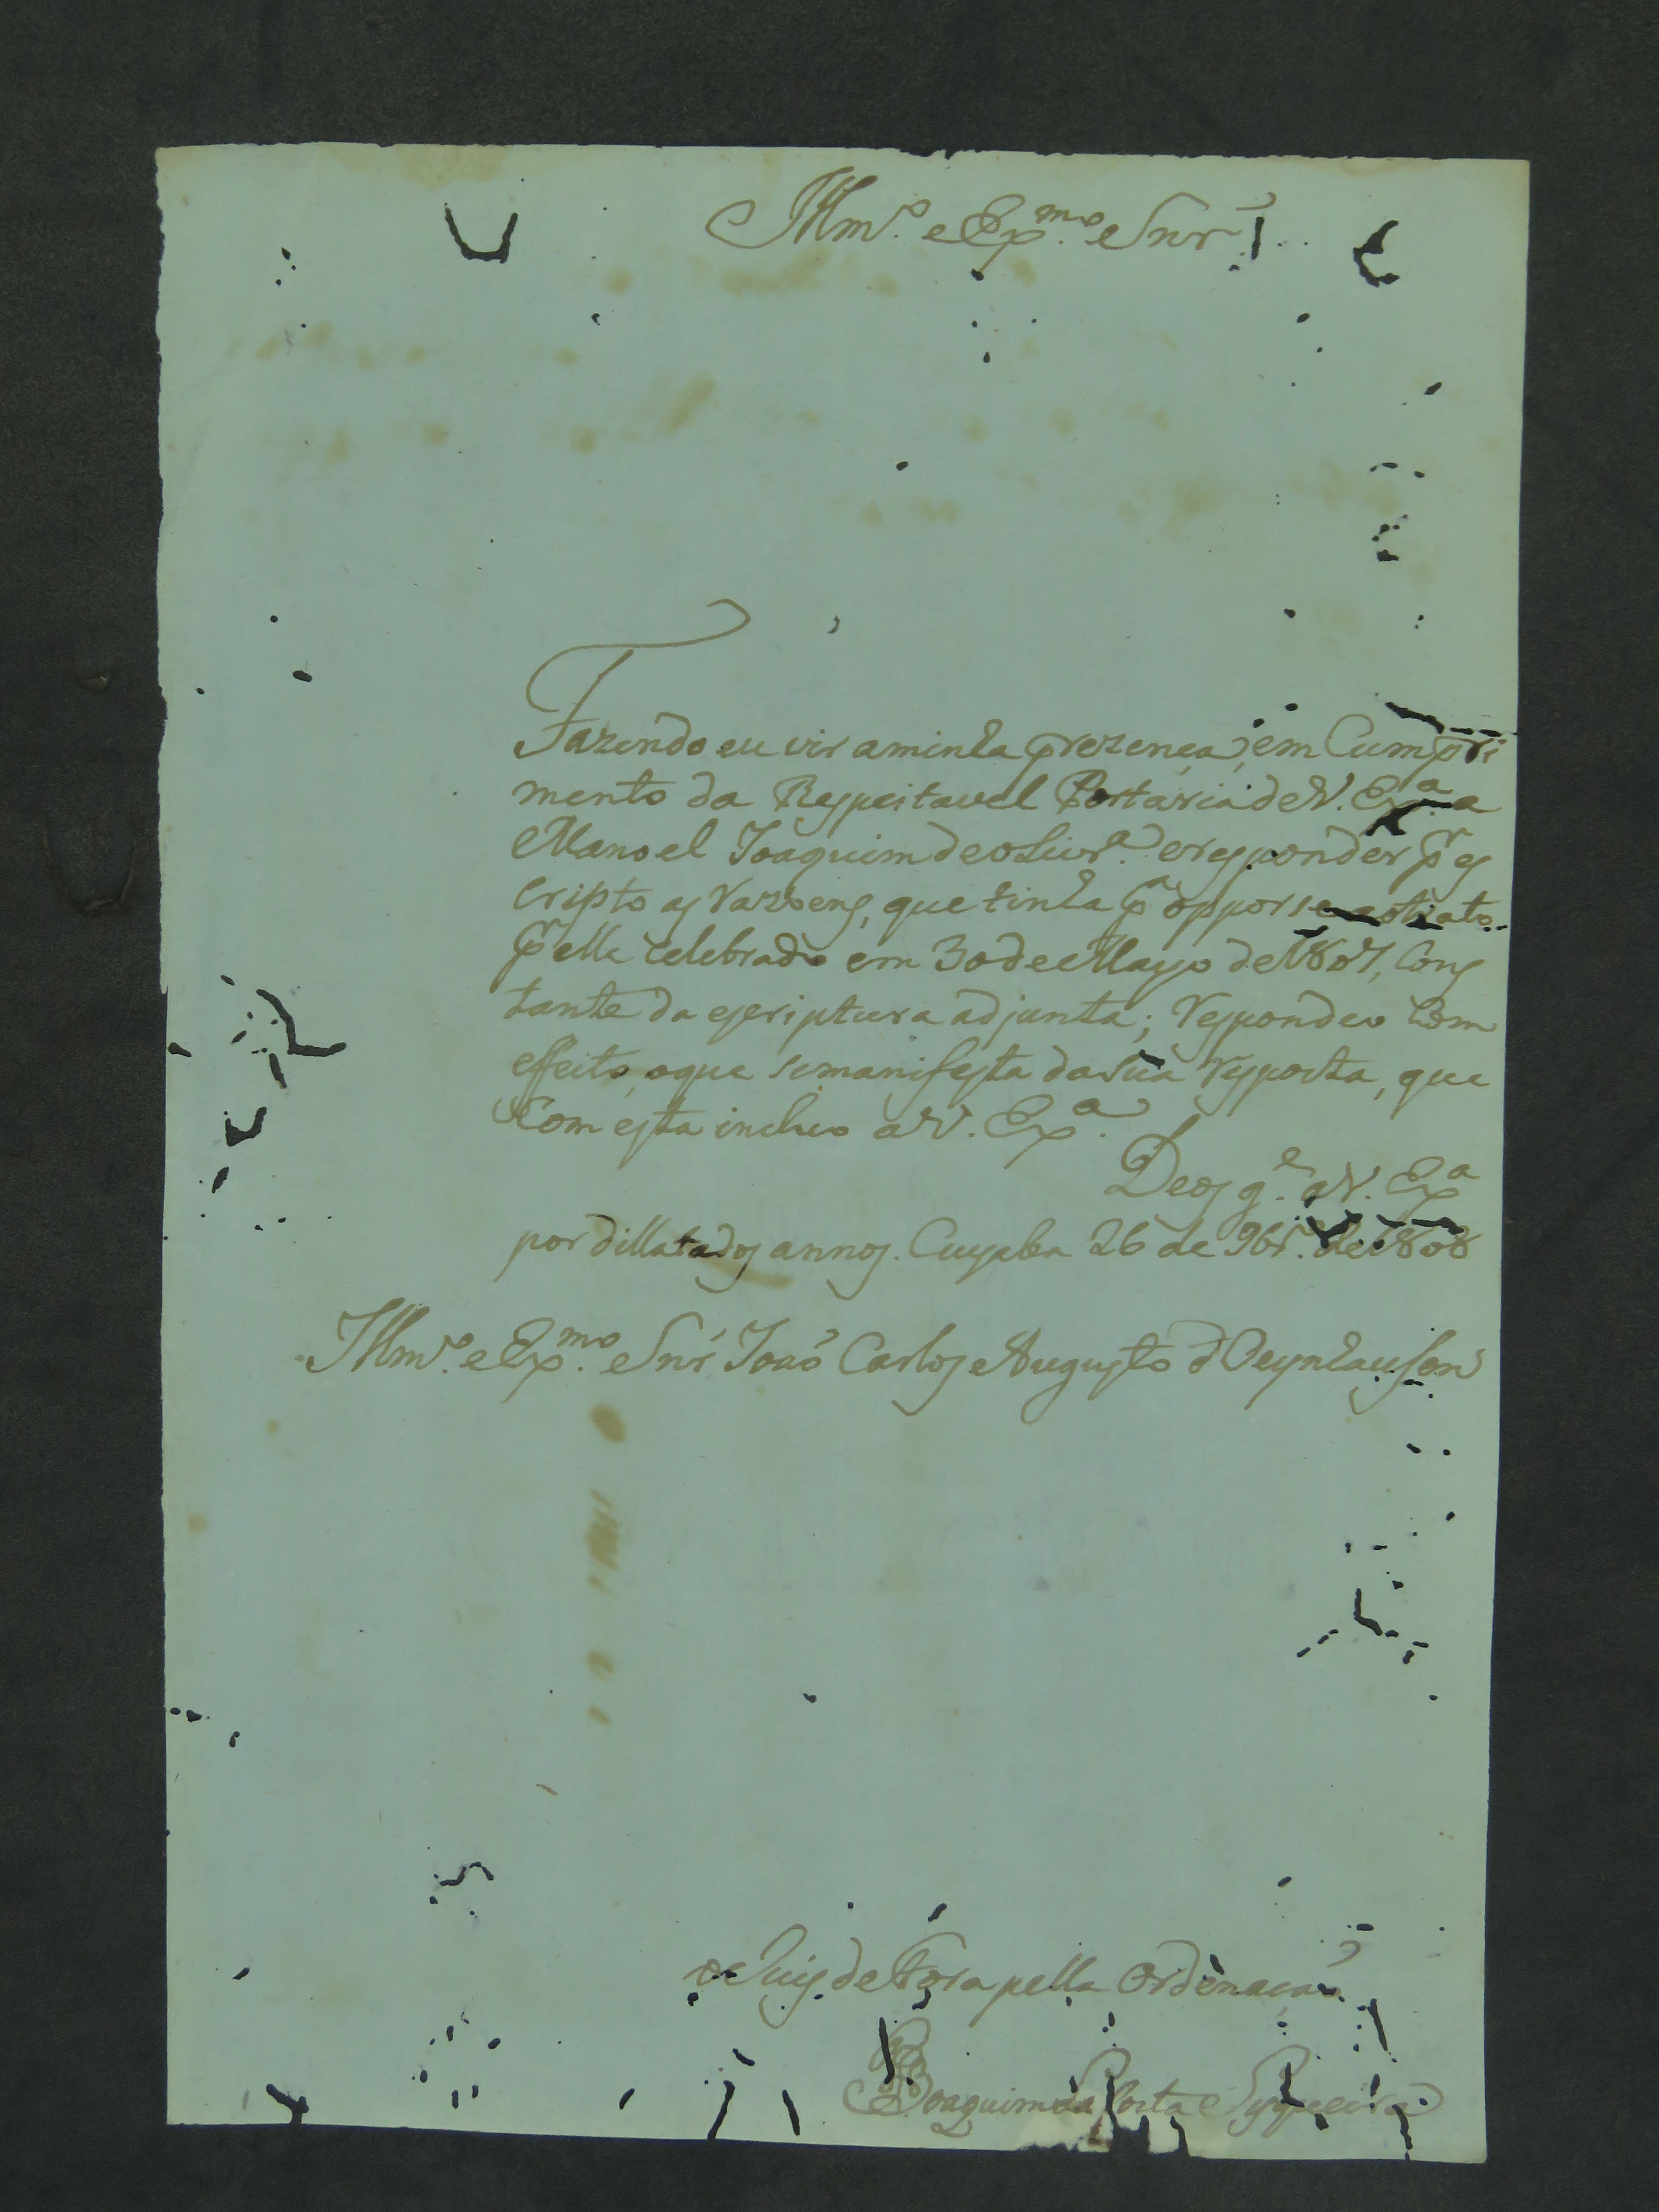 Illmo. e Exmo. Snr.
Fazendo eu vir a minha prezença, em Cumpri
mento da Respeitavel Portaria de V. Exa. a
Manoel Joaquim de oLivra. e responder pr. es
cripto as razoens, que tinha pa. oppor se
pr. elle celebrado em 30 de Mayo de 1807, Cons
tante da escriptura adjunta; respondeo Com
effeito, o que se manifesta da sua resposta, que
Com esta incluo a V. Exa.
Deos ge. a V. Exa
por dillatados annos. Cuyaba 26 de 9br. de 1808
Illmo. e Exmo. Snr. João Carlos Augusto d'Oeynhausen
o Juis de Fora pella Ordenação
Joaquim da Costa Syqueira